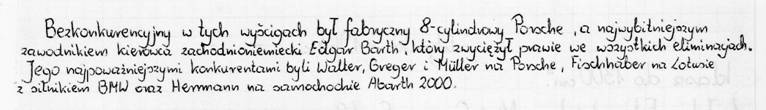 Bezkonkurencyjny w tych wyścigach był fabryczny 8-cylindrowy Porsche, a najwybitniejszym
zawodnikiem kierowca zachodnioniemiecki Edgar Barth, który zwyciężył prawie we wszystkich eliminacjach.
Jego najpoważniejszymi konkurentami byli Walter, Greger i Müller na Porsche, Fischhaber na Lotusie
z silnikiem BMW oraz Herrmann na samochodzie Abarth 2000.